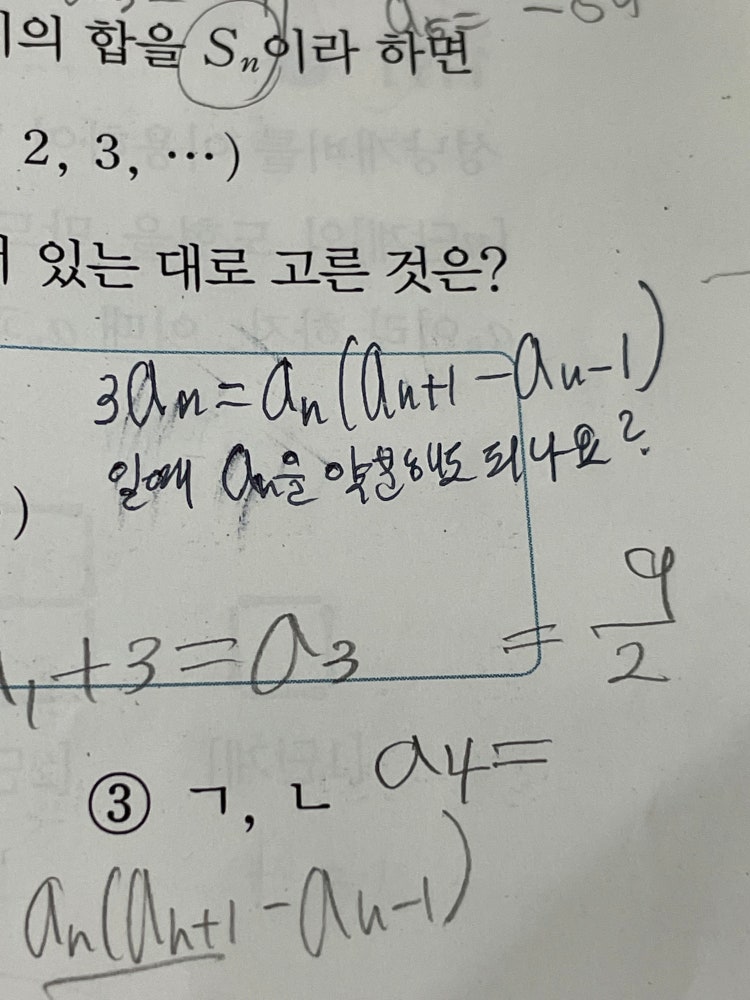 a₅=
의 합을 Sₙ이라 하면
2, 3, ⋯)
있는 대로 고른 것은?
3aₙ=aₙ(aₙ₊₁-aₙ₋₁)
일때 aₙ을 약분해도 되나요?
)
₁+3=a₃ =9/2
a₄=
③ ㄱ, ㄴ
aₙ(aₙ₊₁-aₙ₋₁)